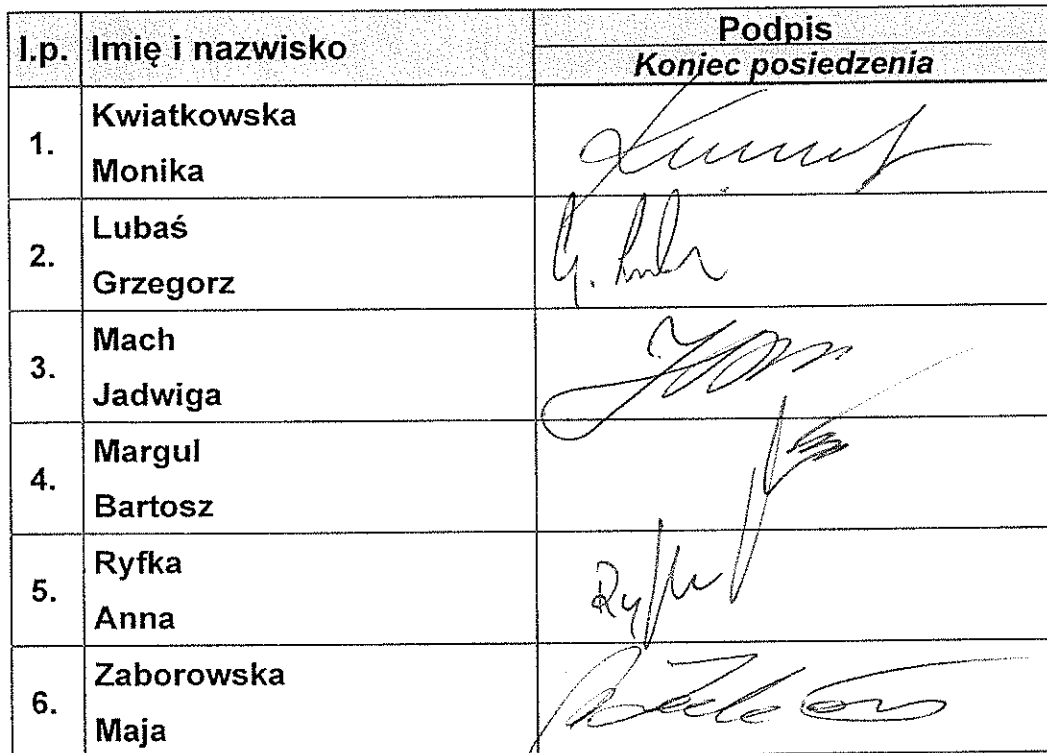 l.p. Imię i nazwisko Podpis
Koniec posiedzenia
1. Kwiatkowska
Monika
2. Lubaś
Grzegorz
3. Mach
Jadwiga
4. Margul
Bartosz
5. Ryfka
Anna
6. Zaborowska
Maja